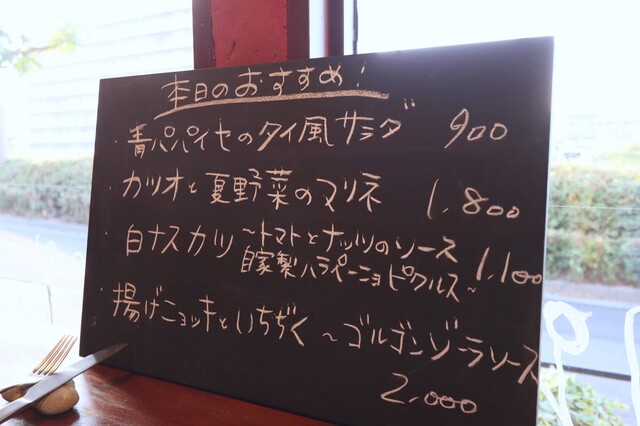 本日のおすすめ!
・青パパイセのタイ風サラダ 900
・カツオと夏野菜のマリネ 1,800
・白ナスカツ ~トマトとナッツのソース
自家製ハラペーニョピクルス~ 1,100
・揚げニョッキといちぢく ~ゴルゴンゾーラソース
2,000